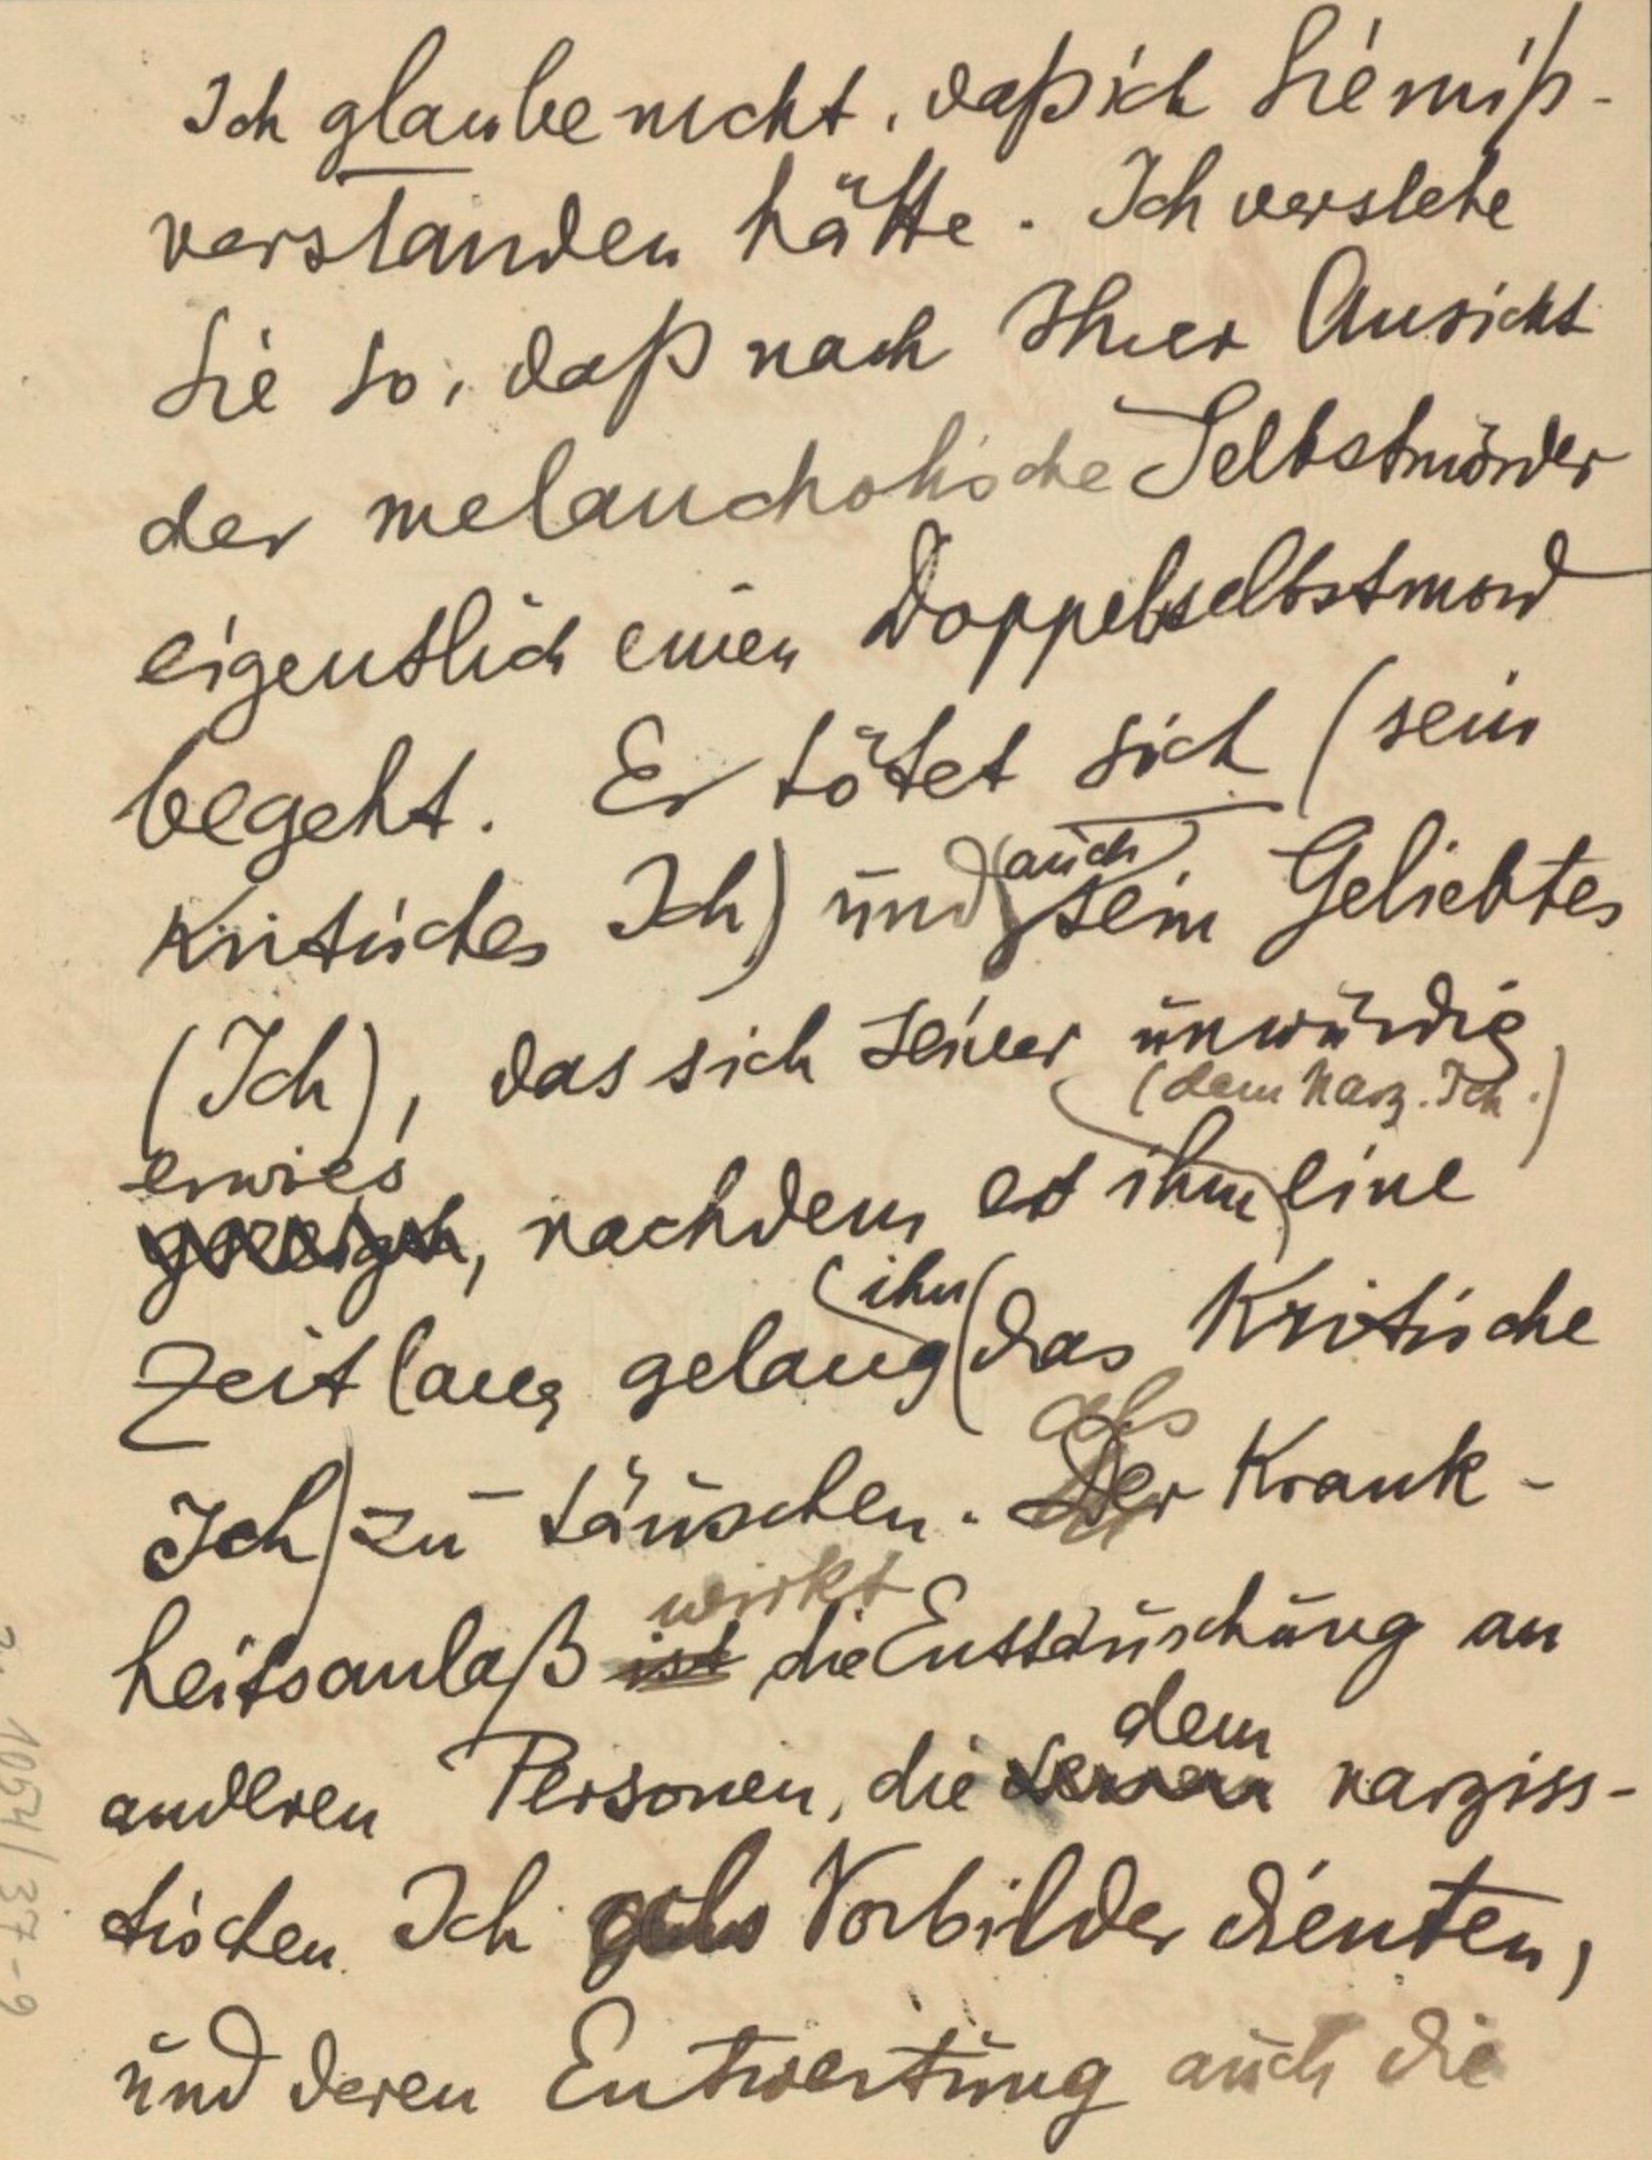 Ich glaube nicht, daß ich Sie miß-
verstanden hätte. Ich verstehe
Sie so, daß nach Ihrer Ansicht
der melancholische Selbstmörder
eigentlich einen Doppelselbstmord
begeht. Er tötet sich (sein
Kritisches Ich) und (auch) sein Geliebtes
(Ich), das sich seiner unwürdig
(dem Narz. Ich.)
erwies
, nachdem es ihm eine
Zeitlang gelang ihn (das Kritische
Ich) zu täuschen. Als Krank-
wirkt
heitsanlaß ist die Enttäuschung an
dem
anderen Personen, die narziss-
tischen Ich als Vorbilder dienten,
und deren Entwertung auch die
1054/37-9